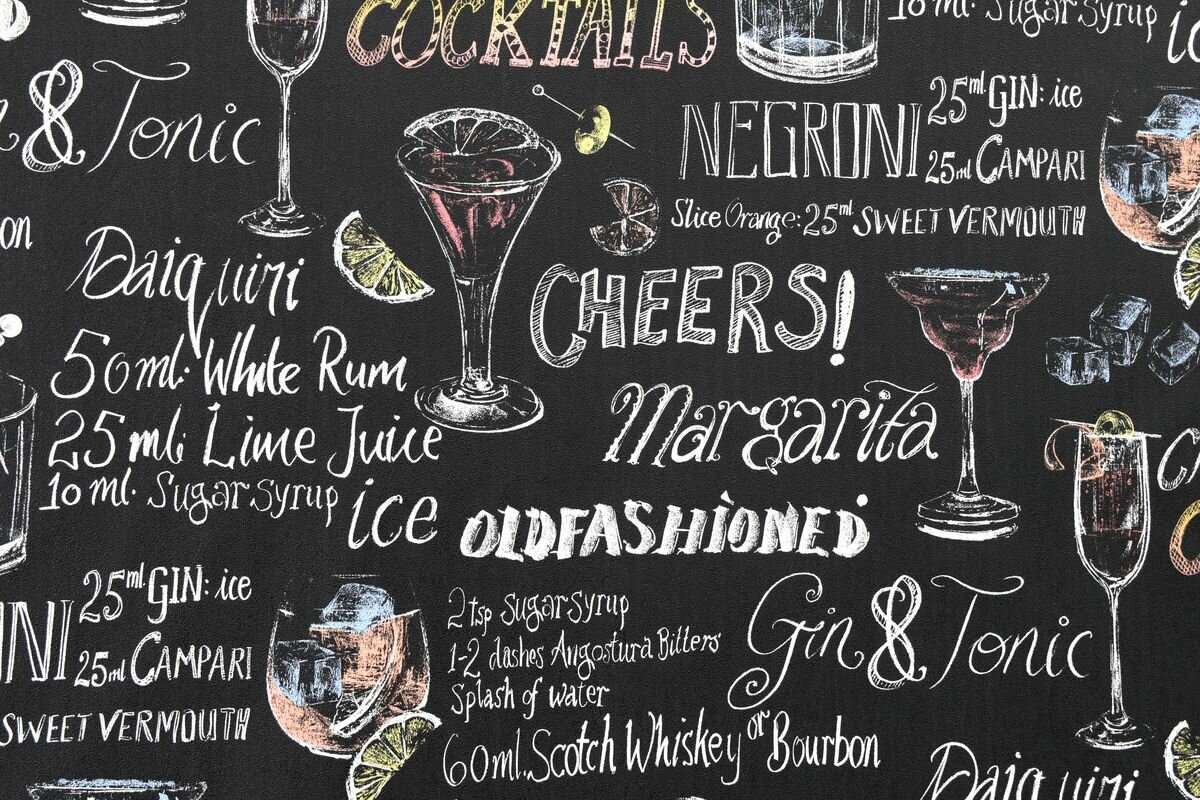 COCKTAILS
10 ml. Sugar Syrup
& Tonic
NEGRONI
25ml GIN: ice
25ml CAMPARI
Slice Orange: 25ml SWEET VERMOUTH
on
Daiquiri
50ml. White Rum
25 ml. Lime Juice
10 ml. Sugar Syrup ice
CHEERS!
Margarita
OLDFASHIONED
2 tsp Sugar Syrup
1-2 dashes Angostura Bitters
Splash of water
60ml. Scotch Whiskey or Bourbon
Gin & Tonic
NI
25ml. GIN: ice
25ml CAMPARI
SWEET VERMOUTH
Daiquiri